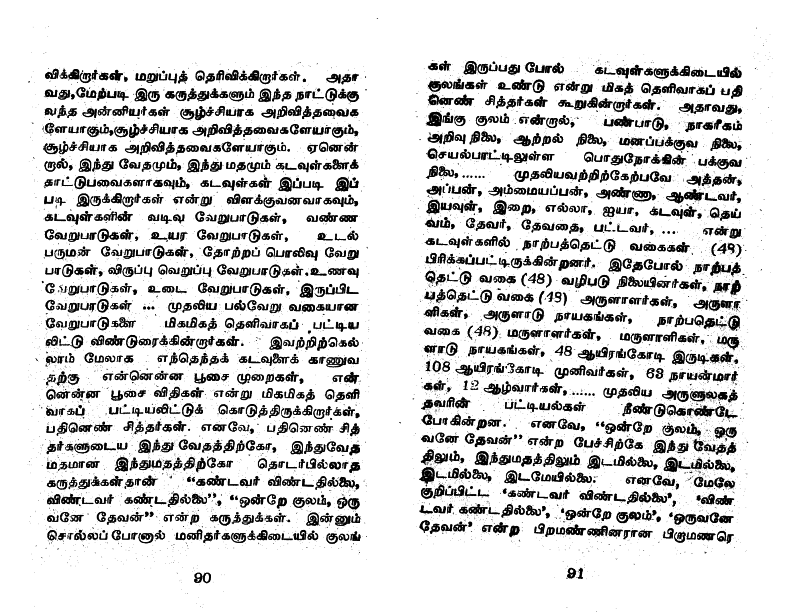 விக்கிறார்கள், மறுப்புத் தெரிவிக்கிறார்கள். அதா
வது,மேற்படி இரு கருத்துக்களும் இந்த நாட்டுக்கு
வந்த அன்னியர்கள் சூழ்ச்சியாக அறிவித்தவைக
ளேயாகும்,சூழ்ச்சியாக அறிவித்தவைகளேயாகும்,
சூழ்ச்சியாக அறிவித்தவைகளேயாகும். ஏனென்
றால், இந்து வேதமும், இந்து மதமும் கடவுள்களைக்
காட்டுபவைகளாகவும், கடவுள்கள் இப்படி இப்
படி இருக்கிறார்கள் என்று விளக்குவனவாகவும்,
கடவுள்களின் வடிவ வேறுபாடுகள், வண்ண
வேறுபாடுகள், உயர வேறுபாடுகள், உடல்
பருமன் வேறுபாடுகள், தோற்றப் பொலிவு வேறு
பாடுகள், விருப்பு வெறுப்பு வேறுபாடுகள்.உணவு
வேறுபாடுகள், உடை வேறுபாடுகள், இருப்பிட
வேறுபாடுகள் ... முதலிய பல்வேறு வகையான
வேறுபாடுகளை மிகமிகத் தெளிவாகப் பட்டிய
லிட்டு விண்டுரைக்கின்றார்கள். இவற்றிற்கெல்
லாம் மேலாக எந்தெந்தக் கடவுளைக் காணுவ
தற்கு என்னென்ன பூசை முறைகள், என்
னென்ன பூசை விதிகள் என்று மிகமிகத் தெளி
வாகப் பட்டியலிட்டுக் கொடுத்திருக்கிறார்கள்,
பதினெண் சித்தர்கள். எனவே, பதினெண் சித்
தர்களுடைய இந்து வேதத்திற்கோ, இந்துவேத
மதமான இந்துமதத்திற்கோ தொடர்பில்லாத
கருத்துக்கள்தான் “கண்டவர் விண்டதில்லை,
விண்டவர் கண்டதில்லை”, “ஒன்றே குலம், ஒரு
வனே தேவன்” என்ற கருத்துக்கள். இன்னும்
சொல்லப் போனால் மனிதர்களுக்கிடையில் குலங்
90
கள் இருப்பது போல் கடவுள்களுக்கிடையில்
குலங்கள் உண்டு என்று மிகத் தெளிவாகப் பதி
னெண் சித்தர்கள் கூறுகின்றார்கள். அதாவது,
இங்கு குலம் என்றால், பண்பாடு, நாகரீகம்
அறிவு நிலை, ஆற்றல் நிலை, மனப்பக்குவ நிலை,
செயல்பாட்டிலுள்ள பொதுநோக்கின் பக்குவ
நிலை,...... முதலியவற்றிற்கேற்பவே அத்தன்,
அப்பன், அம்மையப்பன், அண்ணா, ஆண்டவர்,
இயவுள், இறை, எல்லா, ஐயா, கடவுள், தெய்
வம், தேவர், தேவதை, பட்டவர், ... என்று
கடவுள்களில் நாற்பத்தெட்டு வகைகள் (48)
பிரிக்கப்பட்டிருக்கின்றனர். இதேபோல் நாற்பத்
தெட்டு வகை (48) வழிபடு நிலையினர்கள், நாற்
பத்தெட்டு வகை (48) அருளாளர்கள், அருளா
ளிகள், அருளாடு நாயகங்கள், நாற்பதெட்டு
வகை (48) மருளாளர்கள், மருளாளிகள், மரு
ளாடு நாயகங்கள், 48 ஆயிரங்கோடி இருடிகள்,
108 ஆயிரங்கோடி முனிவர்கள், 63 நாயன்மார்
கள், 12 ஆழ்வார்கள்,...... முதலிய அருளுலகத்
தவரின் பட்டியல்கள் நீண்டுகொண்டே
போகின்றன. எனவே, “ஒன்றே குலம், ஒரு
வனே தேவன்” என்ற பேச்சிற்கே இந்து வேதத்
திலும், இந்துமதத்திலும் இடமில்லை, இடமில்லை,
இடமில்லை, இடமேயில்லை. எனவே, மேலே
குறிப்பிட்ட ‘கண்டவர் விண்டதில்லை’, ‘விண்
டவர் கண்டதில்லை’, ‘ஒன்றே குலம்’, ‘ஒருவனே
தேவன்’ என்ற பிறமண்ணினரான பிறாமணரெ
91